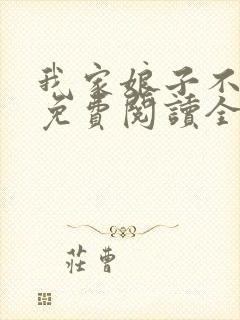 我家娘子不
免費閱讀全
莊曹